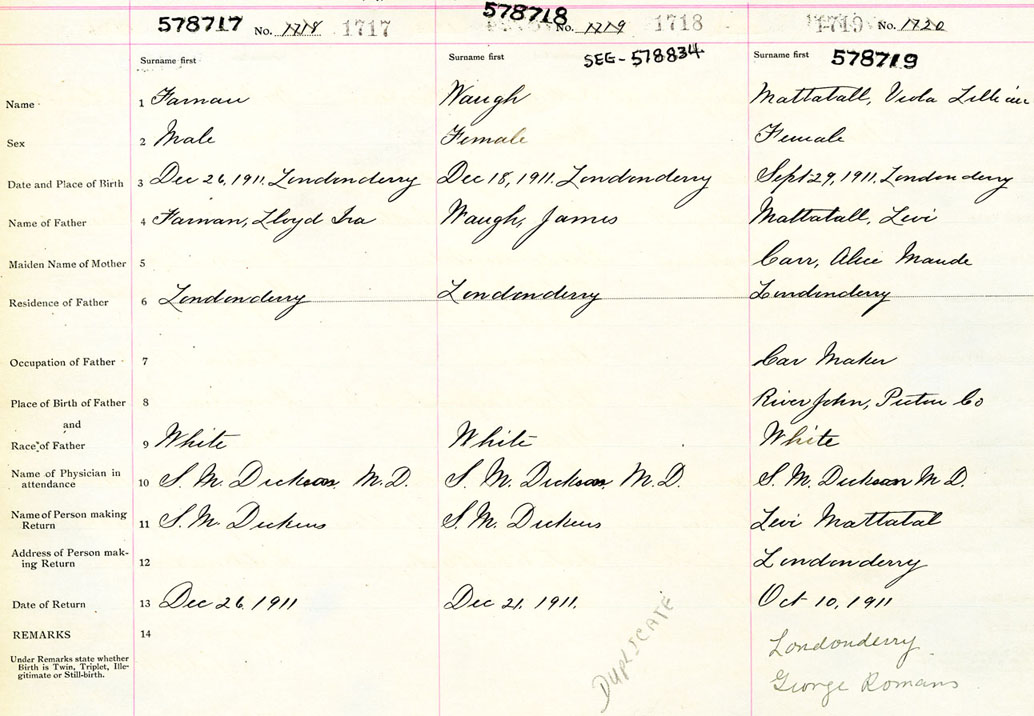 578717 No. 1718 1717
578718 No. 1719 1718
1719 No. 1720
Surname first
Surname first SEE-578834
Surname first 578719
Name 1 Farnan Waugh Mattatall, Viola Lillian
Sex 2 Male Female Female
Date and Place of Birth 3 Dec 26, 1911. Londonderry Dec 18, 1911. Londonderry Sept 29, 1911. Londonderry
Name of Father 4 Farnan, Lloyd Ira Waugh, James Mattatall, Levi
Maiden Name of Mother 5 Carr, Alice Maude
Residence of Father 6 Londonderry Londonderry Londonderry
Occupation of Father 7 Car Maker
Place of Birth of Father 8 River John, Pictou Co
and
Race of Father 9 White White White
Name of Physician in
attendance 10 S. M. Dickson M.D. S. M. Dickson M.D. S. M. Dickson M D.
Name of Person making
Return 11 S. M. Dickens S. M. Dickens Levi Mattatal
Address of Person mak-
ing Return 12 Londonderry
Date of Return 13 Dec 26 1911 Dec 21, 1911. Oct 10, 1911
REMARKS 14
Under Remarks state whether
Birth is Twin, Triplet, Ille-
gitimate or Still-birth.
DUPLICATE
Londonderry
George Romans